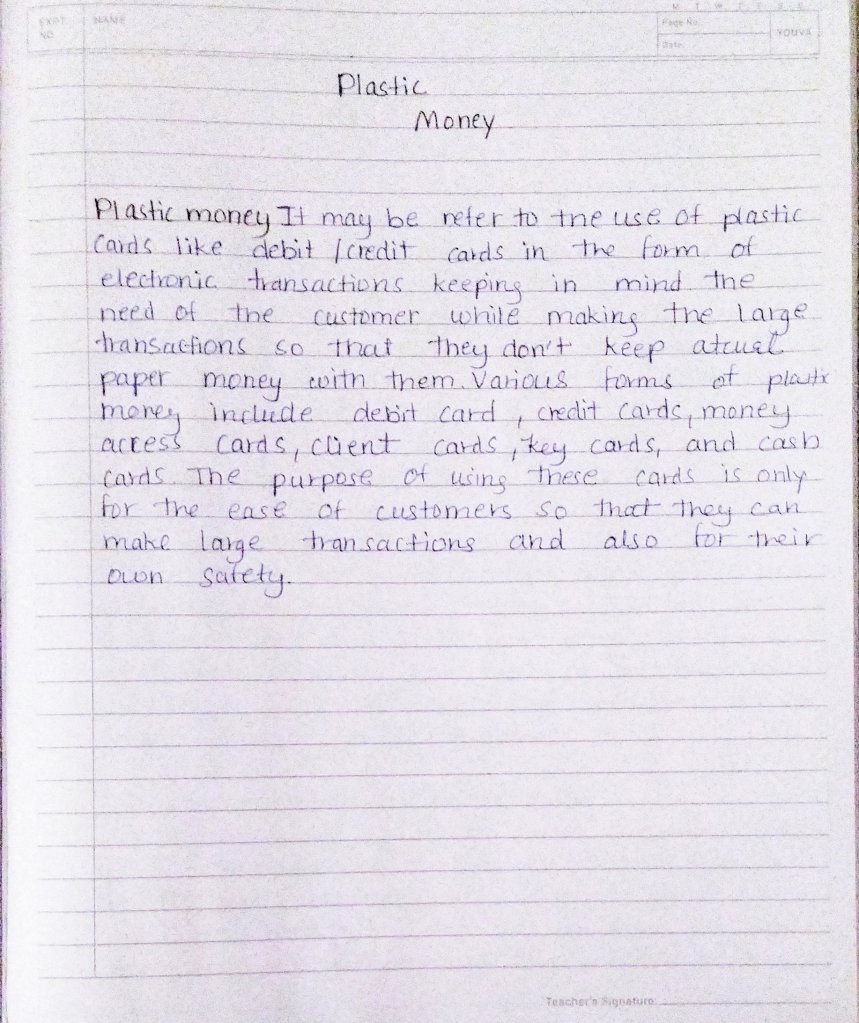 EXPT. NAME
NO.
M T W T F S S
Page No.
Date:
YOUVA
Plastic
Money
Plastic money It may be refer to the use of plastic
Cards like debit /credit cards in the form of
electronic transactions keeping in mind the
need of the customer while making the large
transactions so that they don't keep atcual
paper money with them. Various forms of plastic
money include debit card, credit cards, money
access cards, client cards, key cards, and cash
cards. The purpose of using these cards is only
for the ease of customers so that they can
make large transactions and also for their
own safety.
Teacher's Signature